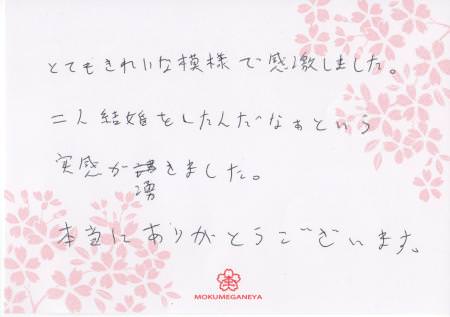 とてもきれいな模様で感激しました。
二人結婚をしたんだなぁという
実感が湧きました。
本当にありがとうございます。
MOKUMEGANEYA